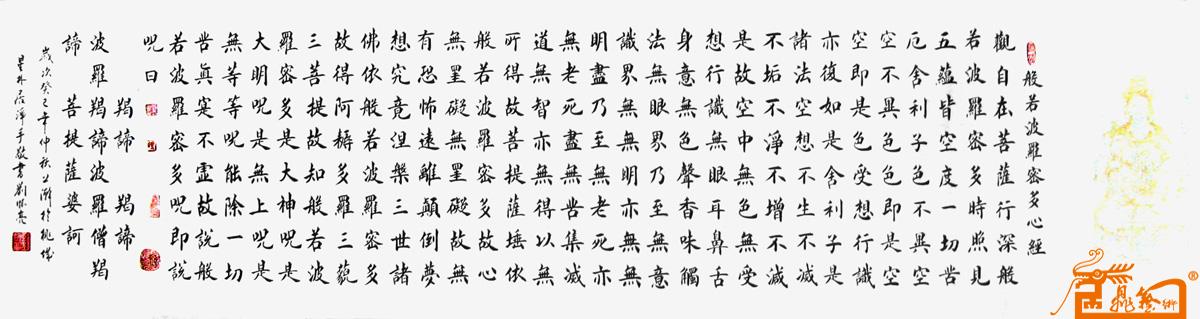 般若波羅密多心經
觀自在菩薩行深般
若波羅密多時照見
五蘊皆空度一切苦
厄舍利子色不異空
空不異色色即是空
空即是色受想行識
亦復如是舍利子是
諸法空想不生不滅
不垢不淨不增不減
是故空中無色無受
想行識無眼耳鼻舌
身意無色聲香味觸
法無眼界乃至無意
識界無無明亦無無
明盡乃至無老死亦
無老死盡無苦集滅
道無智亦無得以無
所得故菩提薩埵依
般若波羅密多故心
無罣礙無罣礙故無
有恐怖遠離顛倒夢
想究竟涅槃三世諸
佛依般若波羅密多
故得阿耨多羅三藐
三菩提故知般若波
羅密多是大神呪是
大明呪是無上呪是
無等等呪能除一切
苦真寔不虛故說般
若波羅密多呪即說
呪曰
羯諦 羯諦
波羅羯諦波羅僧羯
諦 菩提薩婆訶
歲次癸巳年仲秋 於桃城
淨手敬書劉
鼎藝術